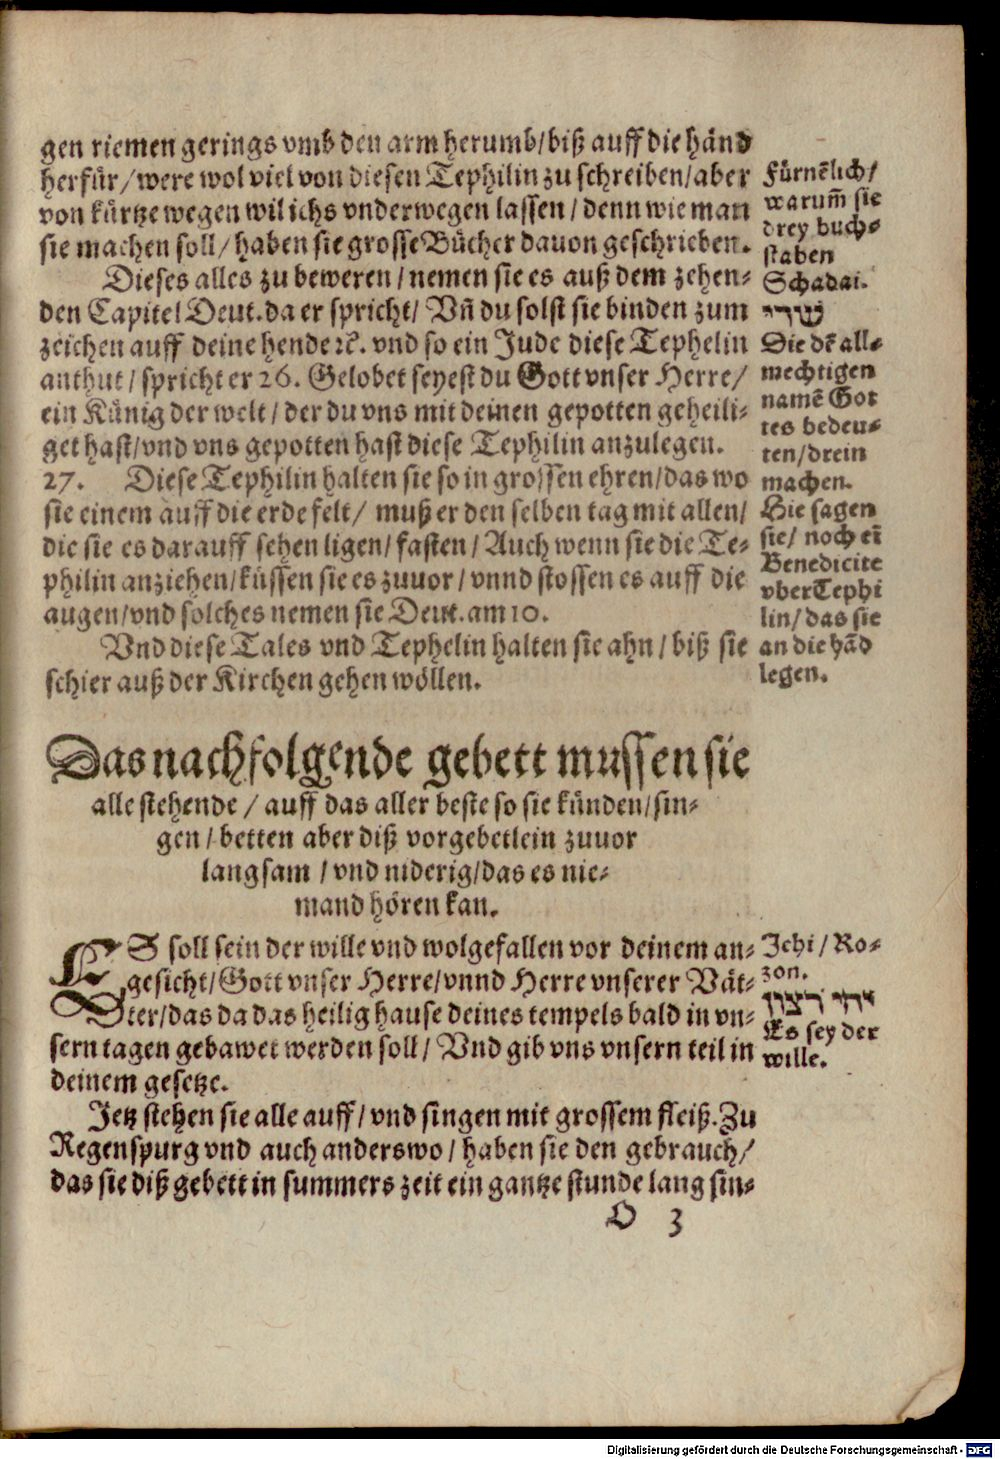 gen riemen gerings vmb den arm herumb/biß auff die händ
herfür/were wol viel von diesen Tephilin zu schreiben/aber
von kürtze wegen wil ichs vnderwegen lassen/denn wie man
sie machen soll/haben sie grosse Bücher dauon geschrieben.
Dieses alles zu beweren/nemen sie es auß dem zehen⸗
den Capitel Deut.da er spricht/Vñ du solst sie binden zum
zeichen auff deine hende ꝛc. vnd so ein Jude diese Tephelin
anthut/spricht er 26. Gelobet seyest du Gott vnser Herre/
ein Künig der welt/der du vns mit deinen gepotten geheili⸗
get hast/vnd vns gepotten hast diese Tephilin anzulegen.
27. Diese Tephilin halten sie so in grossen ehren/das wo
sie einem auff die erde felt/muß er den selben tag mit allen/
die sie es darauff sehen ligen/fasten/Auch wenn sie die Te⸗
philin anziehen/küssen sie es zuuor/vnnd stossen es auff die
augen/vnd solches nemen sie Deut.am 10.
Vnd diese Tales vnd Tephelin halten sie ahn/biß sie
schier auß der Kirchen gehen wöllen.
Fürnẽlich/
warum̃ sie
drey buch⸗
staben
Schadai.
שדי
Die dẽ all⸗
mechtigen
namẽ Got
tes bedeu⸗
ten/drein
machen.
Hie sagen
sie/noch eĩ
Benedicite
vber Tephi
lin/das sie
an die hãd
legen.
Das nachfolgende gebett mussen sie
alle stehende/auff das aller beste so sie künden/sin⸗
gen/betten aber diß vorgebetlein zuuor
langsam/vnd niderig/das es nie⸗
mand hören kan.
ES soll sein der wille vnd wolgefallen vor deinem an⸗
gesicht/Gott vnser Herre/vnnd Herre vnserer Vät⸗
ter/das da das heilig hause deines tempels bald in vn⸗
sern tagen gebawet werden soll/Vnd gib vns vnsern teil in
deinem gesetze.
Jehi/Ro⸗
zon.
יהי רצון
Es sey der
wille.
Jetz stehen sie alle auff/vnd singen mit grossem fleiß.Zu
Regenspurg vnd auch anderswo/haben sie den gebrauch/
das sie diß gebett in summers zeit ein gantze stunde lang sin⸗
O 3
Digitalisierung gefördert durch die Deutsche Forschungsgemeinschaft - DFG